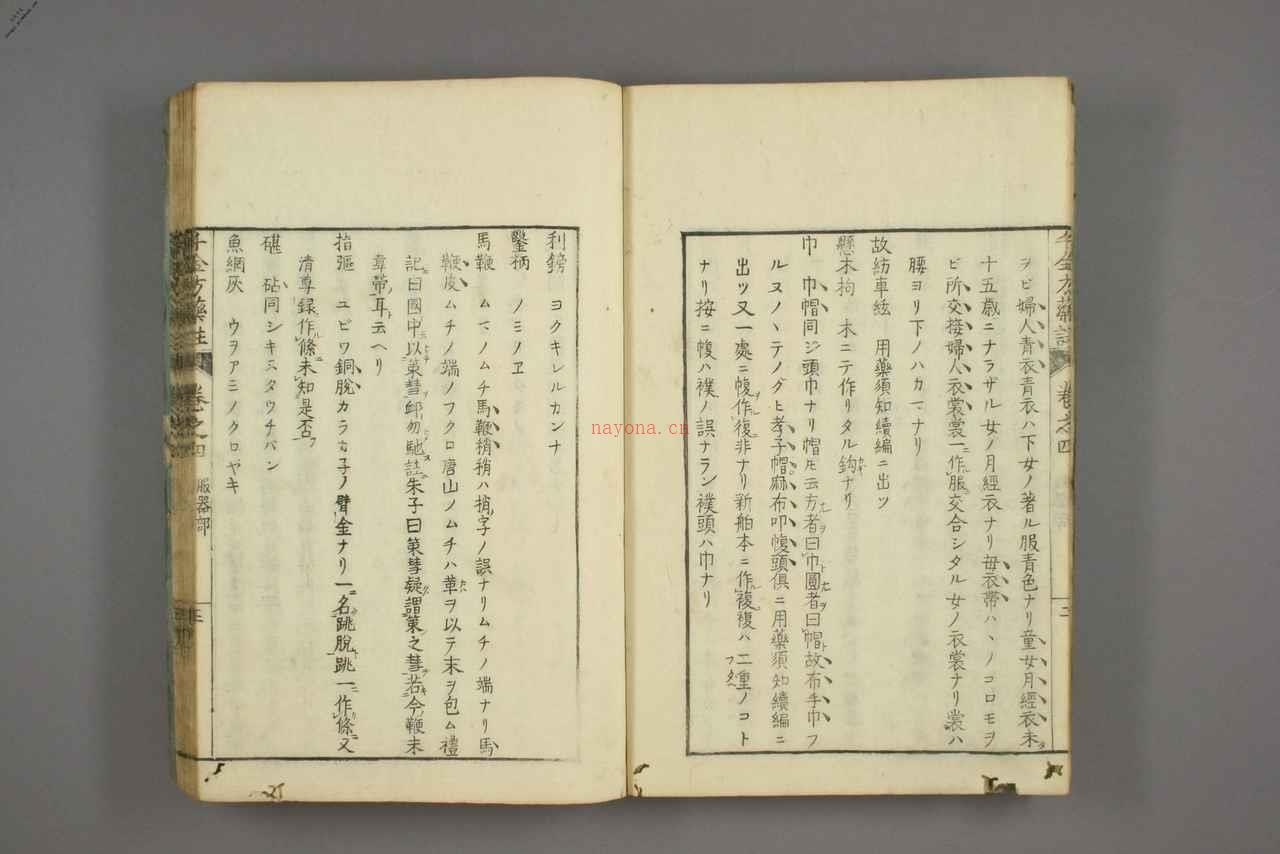 千金方藥註 卷之四 二
ヲビ婦人青衣青衣ハ下女ノ著ル服青色ナリ童女月經衣未
十五歳ニナラザル女ノ月經衣ナリ毋衣帶ハヽノコロモヲ
ビ所交接婦人衣裳裳一作服交合シタル女ノ衣裳ナリ裳ハ
腰ヨリ下ノハカマナリ
故紡車絃 用藥須知續編ニ出ツ
懸木拘 木ニテ作リタル鈎ナリ
巾 巾帽同ジ頭巾ナリ帽モ云方者曰巾圓者曰帽故布手巾フ
ルヌノヽテノグヒ孝子帽麻布叩㡤頭俱ニ用藥須知續編ニ
出ツ又一處ニ㡤作復非ナリ新舶本ニ作複複ハ二重ノコト
ナリ按ニ㡤ハ襆ノ誤ナラン襆頭ハ巾ナリ
nayona.cn
利鎊 ヨクキレルカンナ
鑿柄 ノミノヱ
馬鞭 ムマノムチ馬鞭稍稍ハ梢字ノ誤ナリムチノ端ナリ馬
鞭皮ムチノ端ノフクロ唐山ノムチハ革ヲ以テ末ヲ包ム禮
記曰國中以策彗卹勿馳註朱子曰策彗疑謂策之彗若今鞭末
韋帶耳云ヘリ
指彄 ユビワ銅脫カラカ子ノ臂金ナリ一名跳脫跳一作條又
清尊録作條未知是否
碪 砧同シキヌタウチバン
魚網灰 ウヲアミノクロヤキ
千金方藥註 卷之四 服器部 三